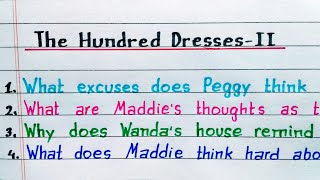 The Hundred Dresses-II
1. What excuses does Peggy think
2. What are Maddie's thoughts as t
3. Why does Wanda's house remind
4. What does Maddie think hard abo